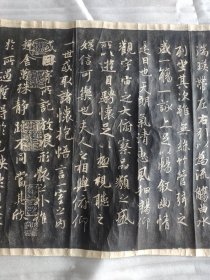 湍暎帶左右引以為流觴曲水
列坐其次雖無絲竹管弦之
盛一觴一詠亦足以暢叙幽情
是日也天朗氣清惠風和暢仰
觀宇宙之大俯察品類之盛
所以遊目騁懷足以極視聽之
娛信可樂也夫人之相與俯仰
一世或取諸懷抱悟言一室之內
或因寄所託放浪形骸之外雖
趣舍萬殊靜躁不同當其欣
於所遇暫得於己快然